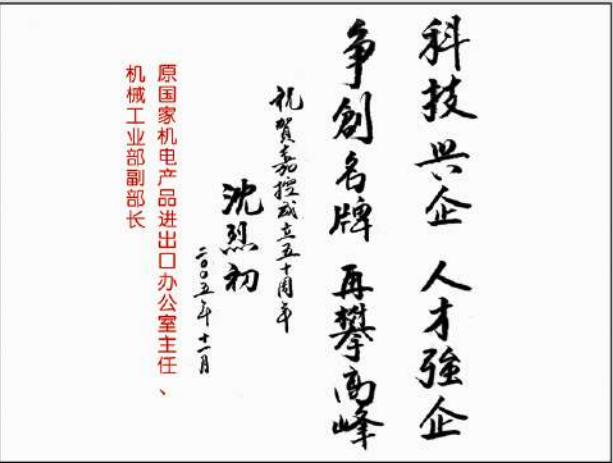 科技兴企 人才強企
争創名牌 再攀高峰
祝賀嘉控成立五十周年
沈烈初
二００五年十一月
原国家机电产品进出口办公室主任、
机械工业部副部长